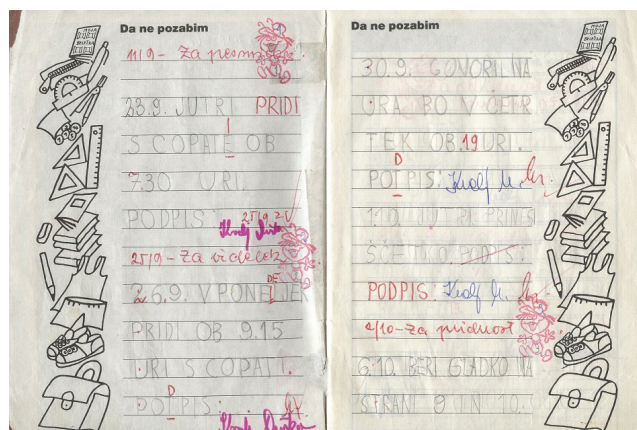 Da ne pozabim
11/9 - Za pesmico.
23.9. JUTRI PRIDI
S COPATI OB
7.30 URI.
PODPIS: 25/9
25/9 - Za
26.9. V PONEDELJEK
PRIDI OB 9.15
URI S COPATI.
PODPIS:
Da ne pozabim
30.9. GOVORILNA
URA BO V ČETR
TEK OB 19 URI.
PODPIS: Kralj M.
1.10. JUTRI PRINESI
ŠČETKO. PODPIS:
PODPIS: Kralj M.
2/10 - Za pridnost
6.10. BERI GLADKO NA
STRANI 8 IN 10.